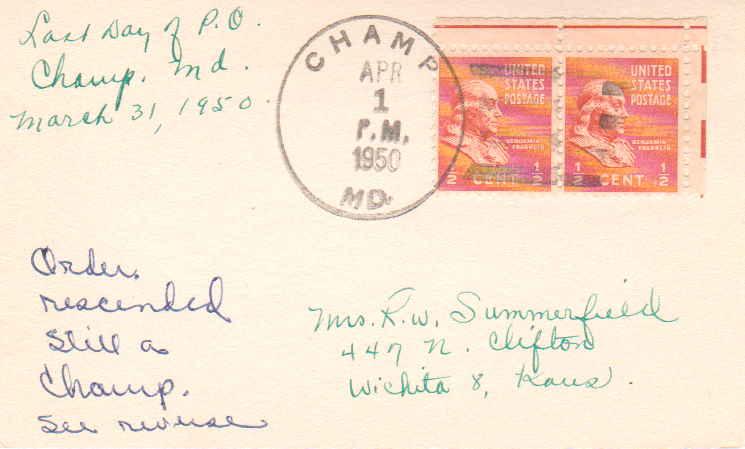 Last Day of P.O.
Champ. Md.
March 31, 1950.
CHAMP
APR
1
P.M.
1950
MD.
UNITED
STATES
POSTAGE
BENJAMIN
FRANKLIN
1/2 CENT 1/2
UNITED
STATES
POSTAGE
BENJAMIN
FRANKLIN
1/2 CENT 1/2
Order.
rescended
Still as
Champ.
See reverse
Mrs. R.W. Summerfield
447 N. Clifton
Wichita 8, Kans.